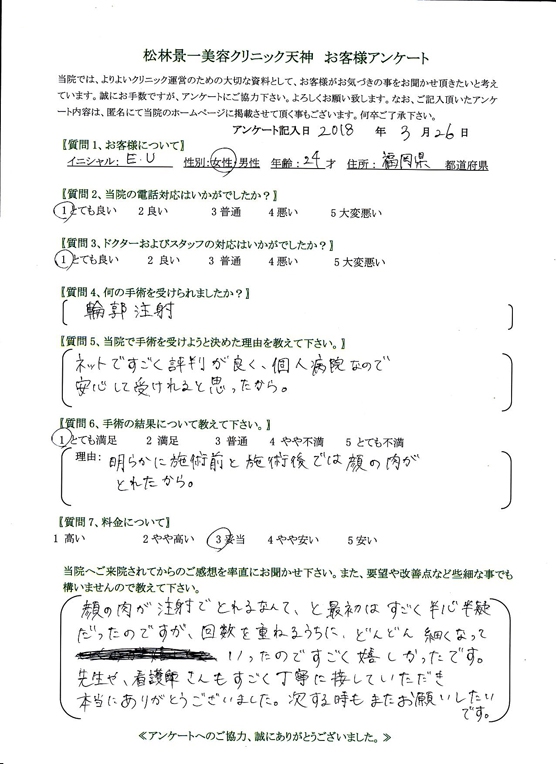 松林景一美容クリニック天神 お客様アンケート
当院では、よりよいクリニック運営のための大切な資料として、お客様がお気づきの事をお聞かせ頂きたいと考え
ています。誠にお手数ですが、アンケートにご協力下さい。よろしくお願い致します。なお、ご記入頂いたアンケ
ート内容は、匿名にて当院のホームページに掲載させて頂く事もございます。何卒ご了承下さい。
アンケート記入日 2018 年 3 月 26 日
〖質問1、お客様について〗
イニシャル：E.U 性別：女性・男性 年齢：24才 住所：福岡県 都道府県
〖質問2、当院の電話対応はいかがでしたか？〗
1 とても良い 2 良い 3 普通 4 悪い 5 大変悪い
〖質問3、ドクターおよびスタッフの対応はいかがでしたか？〗
1 とても良い 2 良い 3 普通 4 悪い 5 大変悪い
〖質問4、何の手術を受けられましたか？〗
輪郭注射
〖質問5、当院で手術を受けようと決めた理由を教えて下さい。〗
ネットですごく評判が良く、個人病院なので
安心して受けれると思ったから。
〖質問6、手術の結果について教えて下さい。〗
1 とても満足 2 満足 3 普通 4 やや不満 5 とても不満
理由：明らかに施術前と施術後では顔の肉が
とれたから。
〖質問7、料金について〗
1 高い 2 やや高い 3 妥当 4 やや安い 5 安い
当院へご来院されてからのご感想を率直にお聞かせ下さい。また、要望や改善点など些細な事でも
構いませんので教えて下さい。
顔の肉が注射でとれるなんて、と最初はすごく半心半疑
だったのですが、回数を重ねるうちに、どんどん細くなって
いったのですごく嬉しかったです。
先生や、看護師さんもすごく丁寧に接していただき
本当にありがとうございました。次する時もまたお願いしたい
です。
≪アンケートへのご協力、誠にありがとうございました。≫